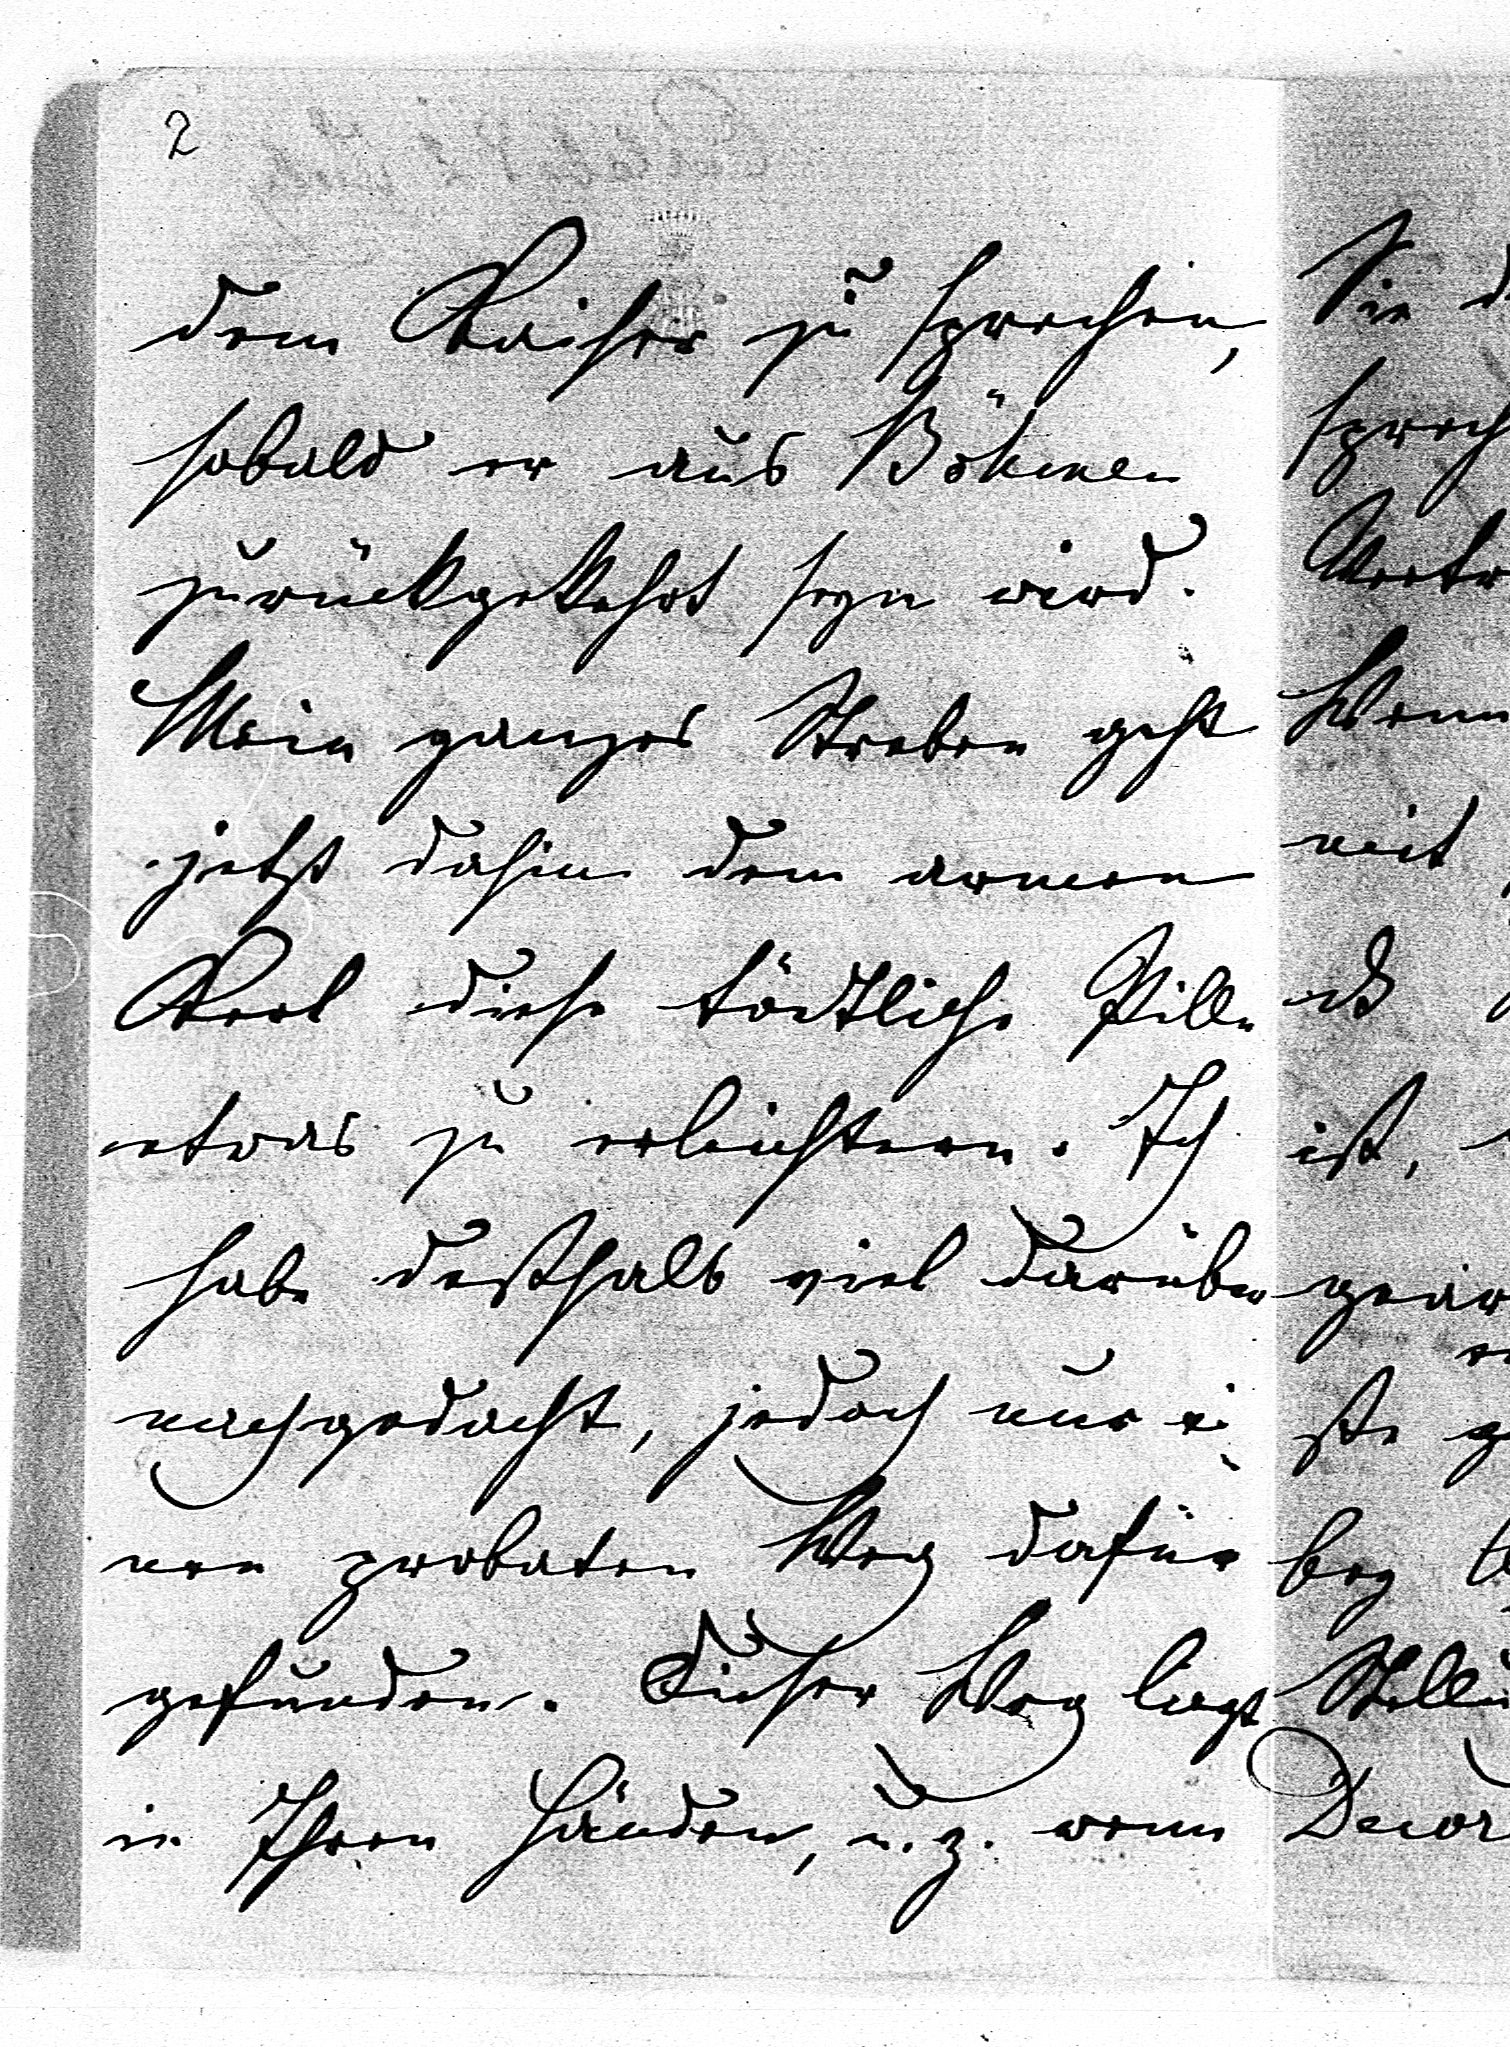 2
dem Kaiser zu sprechen,
sobald er aus Böhmen
zurückgekehrt seyn wird.
Mein ganzes Streben geht
jetzt dahin dem armen
Kerl diese tödtliche Pille
etwas zu erleichtern. Ich
habe deßhalb viel darüber
nachgedacht, jedoch nur ei-
nen probaten Weg dafür
gefunden. Dieser Weg liegt
in Ihren Händen, u. z. wenn
Sie
mit
ist,
bey